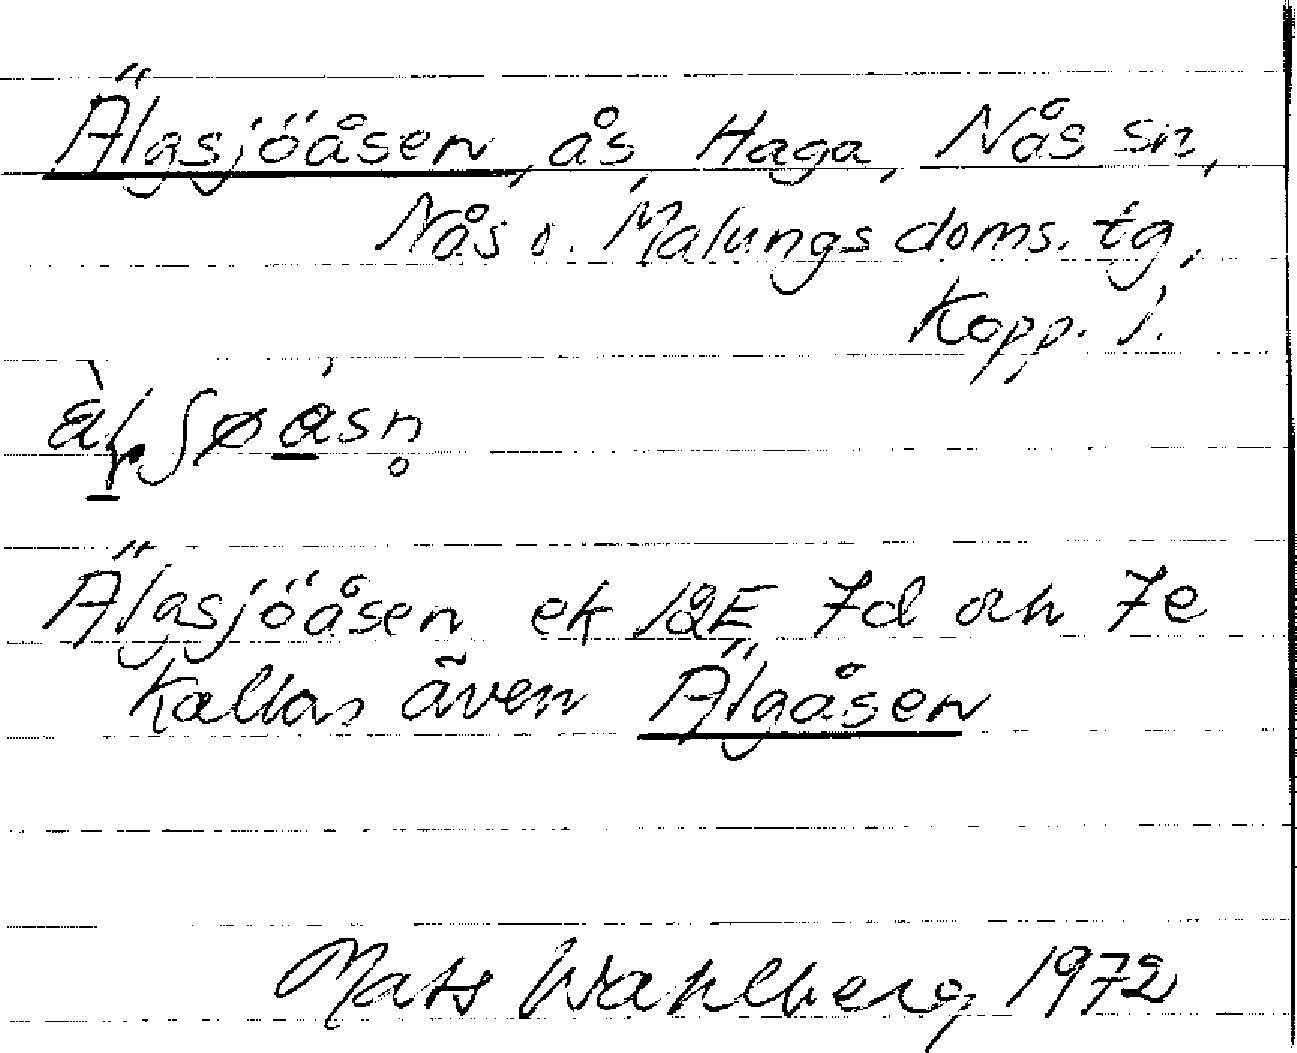 Älgsjöåsen, ås, Haga, Nås sn,
Nås o. Malungs doms. tg,
Kopp. l.
Älgsjöåsen ek 12E 7d och 7e
Kallas även Älgåsen
Mats Wahlberg 1972